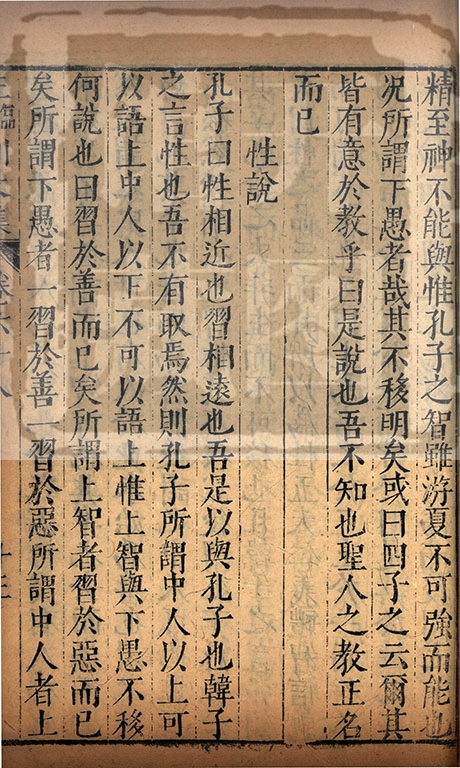 精至神不能與惟孔子之智雖游夏不可強而能也
况所謂下愚者哉其不移明矣或曰四子之云爾其
皆有意於教乎曰是說也吾不知也聖人之教正名
而已
性說
孔子曰性相近也習相遠也吾是以與孔子也韓子
之言性也吾不有取焉然則孔子所謂中人以上可
以語上中人以下不可以語上惟上智與下愚不移
何說也曰習於善而已矣所謂上智者習於惡而已
矣所謂下愚者一習於善一習於惡所謂中人者上
王臨川文集 卷六十八 十三